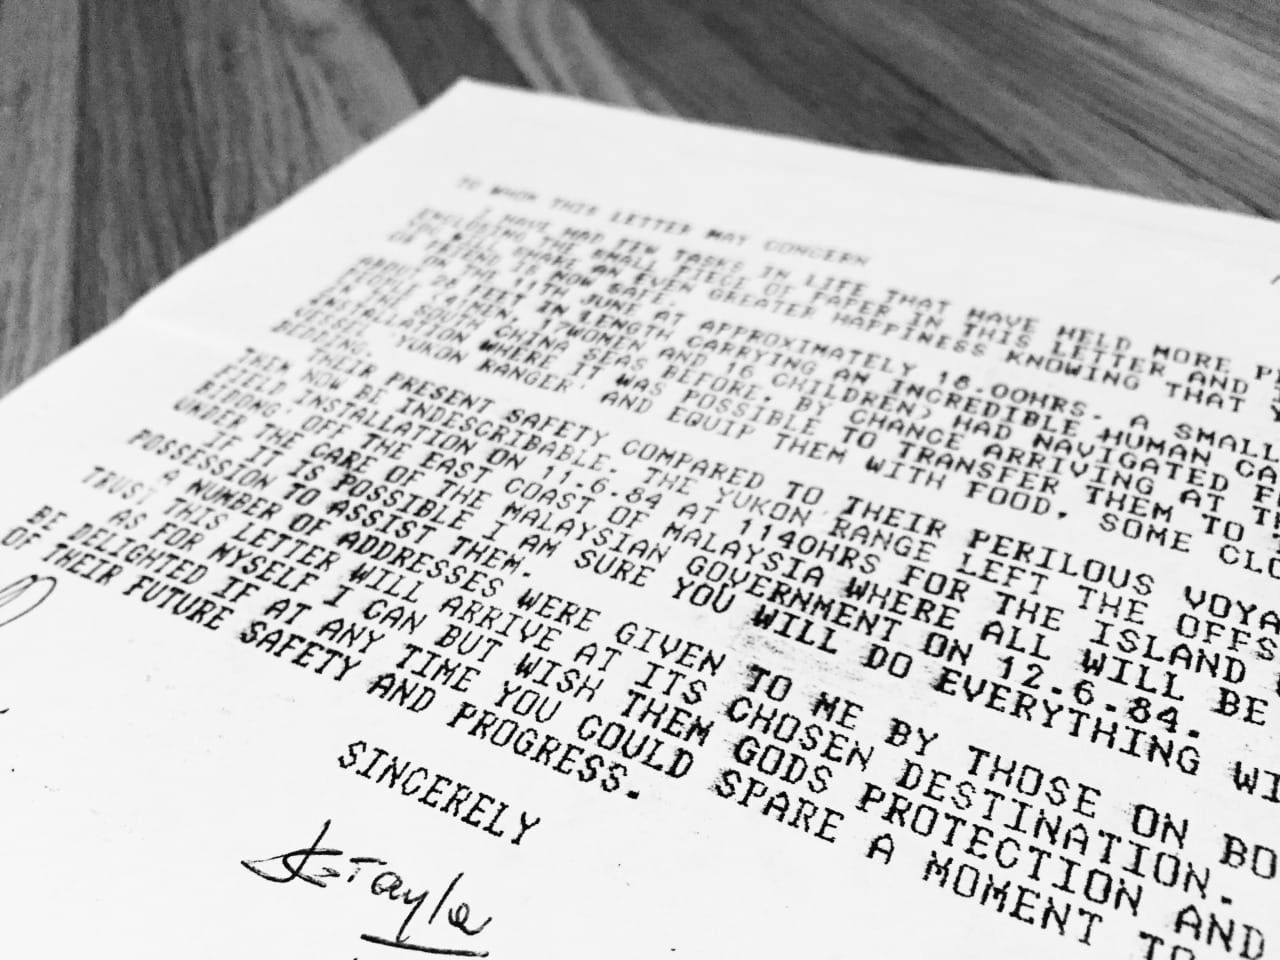 TO WHOM THIS LETTER MAY CONCERN
I HAVE HAD FEW TASKS IN LIFE THAT HAVE HELD MORE
ENCLOSING THE SMALL PIECE OF PAPER IN THIS LETTER AND
YOU WILL SHARE AN EVEN GREATER HAPPINESS KNOWING THAT
OR FRIEND IS NOW SAFE.
ON THE 11TH JUNE AT APPROXIMATELY 18.00HRS. A SMALL
ABOUT 28 FEET IN LENGTH CARRYING AN INCREDIBLE HUMAN CA
PEOPLE (41MEN, 17WOMEN AND 16 CHILDREN) HAD NAVIGATED F
IN THE SOUTH CHINA SEAS BEFORE, BY CHANCE ARRIVING AT TH
INSTALLATION WHERE IT WAS POSSIBLE TO TRANSFER THEM TO
VESSEL 'YUKON RANGER' AND EQUIP THEM WITH FOOD, SOME CLO
BEDDING.
THEIR PRESENT SAFETY COMPARED TO THEIR PERILOUS VOYA
THEN NOW BE INDESCRIBABLE. THE YUKON RANGE LEFT THE OFFS
FIELD INSTALLATION ON 11.6.84 AT 1140HRS FOR THE ISLAND
BIDONG, OFF THE EAST COAST OF MALAYSIA WHERE ALL WILL BE
UNDER THE CARE OF THE MALAYSIAN GOVERNMENT ON 12.6.84.
IF IT IS POSSIBLE I AM SURE YOU WILL DO EVERYTHING WI
POSSESSION TO ASSIST THEM.
A NUMBER OF ADDRESSES WERE GIVEN TO ME BY THOSE ON BO
TRUST THIS LETTER WILL ARRIVE AT ITS CHOSEN DESTINATION.
AS FOR MYSELF I CAN BUT WISH THEM GODS PROTECTION AND
BE DELIGHTED IF AT ANY TIME YOU COULD SPARE A MOMENT TO
OF THEIR FUTURE SAFETY AND PROGRESS.
SINCERELY